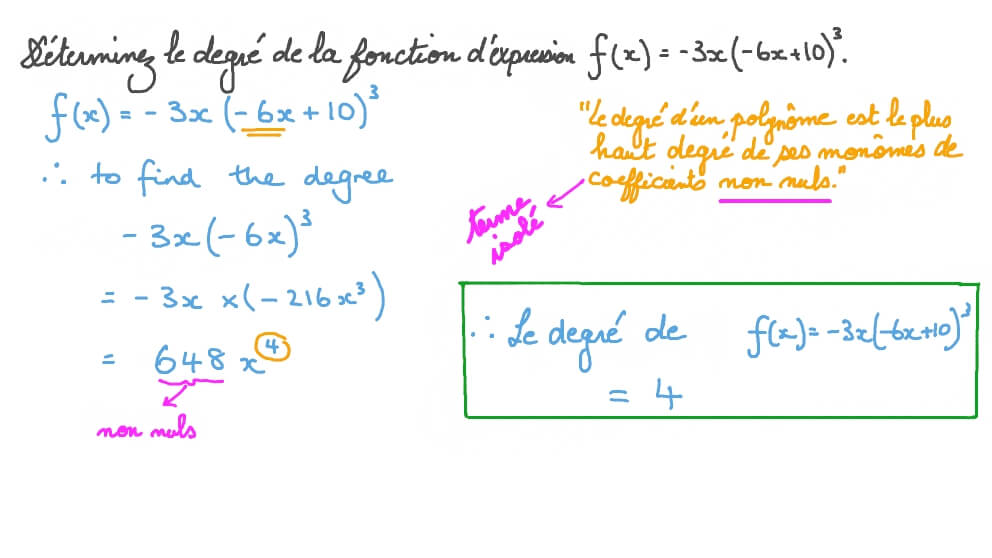 Déterminez le degré de la fonction d'expression f(x) = -3x(-6x+10)³.
f(x) = -3x(-6x+10)³
∴ to find the degree
-3x(-6x)³
= -3x ×(-216x³)
= 648 x⁴
non nuls
"Le degré d'un polynôme est le plus
haut degré de ses monômes de
coefficients non nuls."
terme
isolé
∴ Le degré de f(x)=-3x(-6x+10)³
= 4